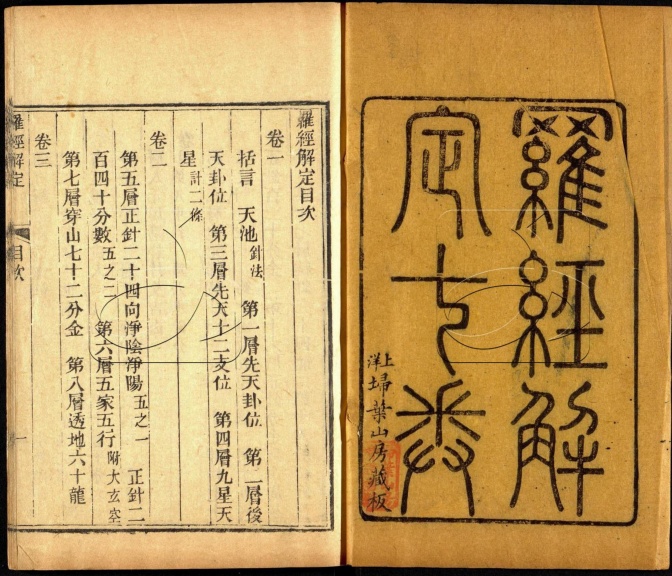 羅經解
定七卷
上洋埽葉山房藏板
羅經解定目次
卷一
括言 天池針法 第一層先天卦位 第二層後
天卦位 第三層先天十二支位 第四層九星天
星計二條
卷二
第五層正針二十四向淨陰淨陽五之一 正針二
百四十分數五之二 第六層五家五行附大玄空
第七層穿山七十二分金 第八層透地六十龍
卷三
羅經解定
目次
一